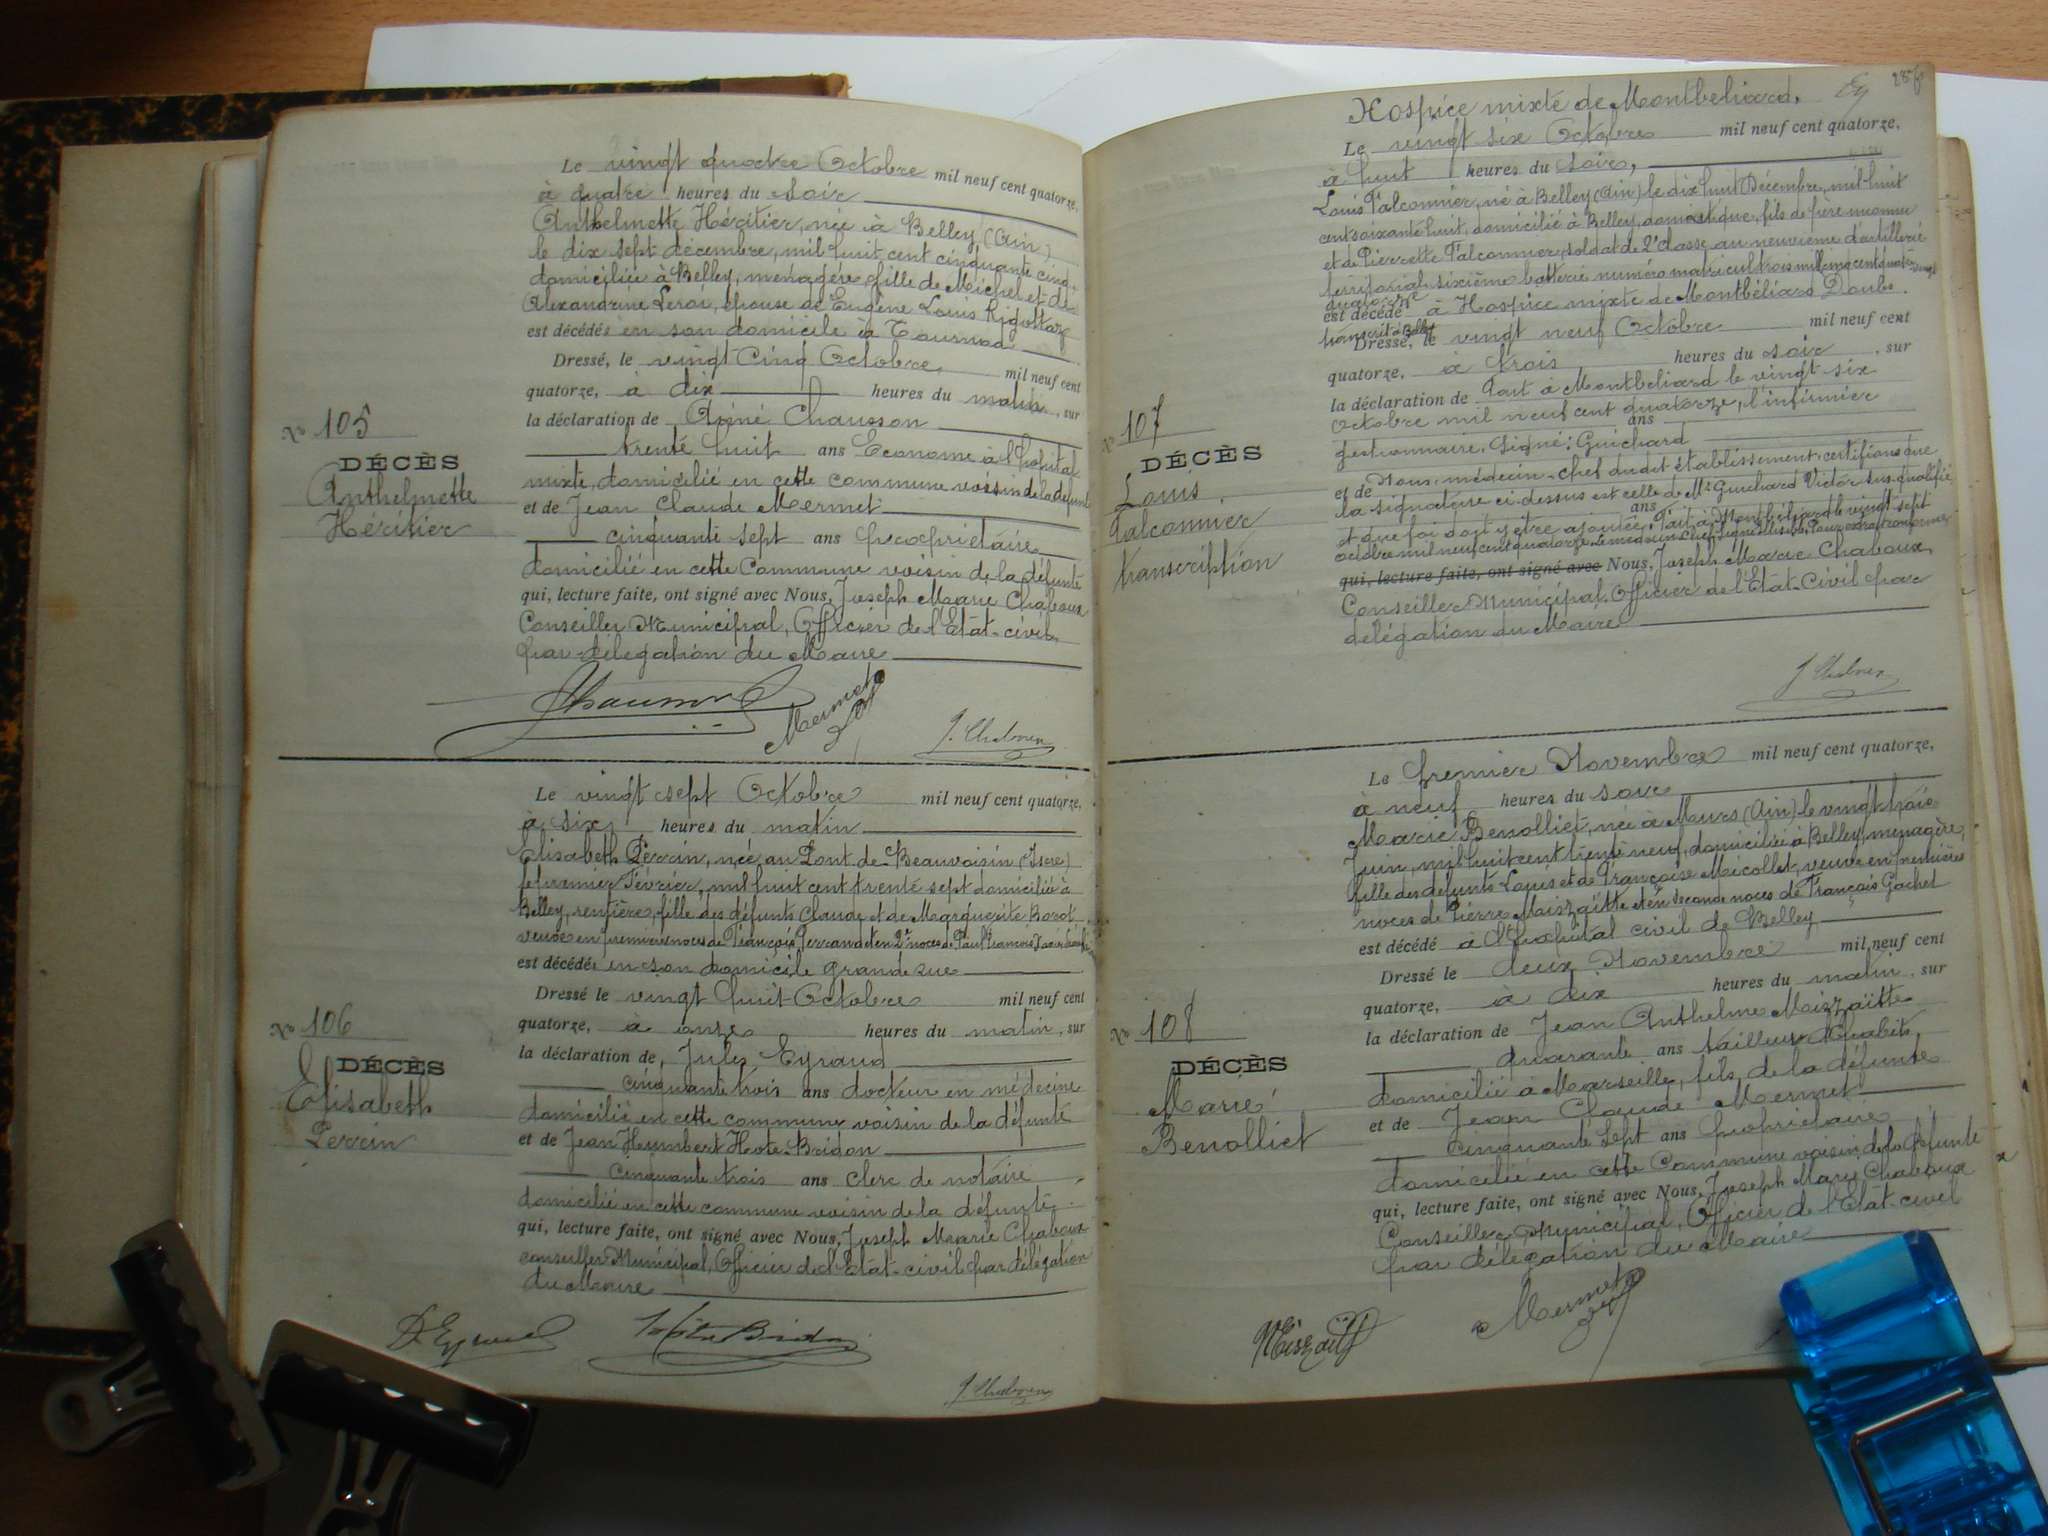 Le vingt quatre Octobre mil neuf cent quatorze,
à quatre heures du soir
Anthelmette Héritier, née à Belley (Ain)
le dix sept décembre, mil huit cent cinquante cinq,
domiciliée à Belley, ménagère, fille de Michel et de
Alexandrine Leroi, épouse de Eugène Louis Rigottaz
est décédée en son domicile à
Dressé, le vingt Cinq Octobre, mil neuf cent
quatorze, à dix heures du matin, sur
la déclaration de Aimé Chausson
trente huit ans Econome à l'hôpital
mixte, domicilié en cette commune voisin de la défunte
et de Jean Claude Mermet
cinquante sept ans propriétaire
domicilié en cette Commune voisin de la défunte
qui, lecture faite, ont signé avec Nous, Joseph Marie Chaboux
Conseiller Municipal, Officier de l'Etat-civil,
par délégation du Maire
No 105
DÉCÈS
Anthelmette
Héritier
Mermet
J. Chaboux
Le vingt sept Octobre mil neuf cent quatorze,
à six heures du matin
Elisabeth Perrin, née au Pont de Beauvoisin (Isère)
le premier Février, mil huit cent trente sept domiciliée à
Belley, rentière, fille des défunts Claude et de Marguerite Borot
veuve en premières noces de François Perrand et en 2e noces de Paul François
est décédée en son domicile grande rue
Dressé le vingt huit Octobre mil neuf cent
quatorze, à onze heures du matin, sur
la déclaration de Jules Eyraud
cinquante trois ans docteur en médecine
domicilié en cette commune voisin de la défunte
et de Jean Humbert Hote-Bridon
cinquante trois ans clerc de notaire
domicilié en cette commune voisin de la défunte
qui, lecture faite, ont signé avec Nous, Joseph Marie Chaboux
conseiller Municipal, Officier de l'Etat-civil par délégation
du Maire
No 106
DÉCÈS
Elisabeth
Perrin
D. Eyraud
Hôte Bridon
J. Chaboux
Hospice mixte de Montbeliard.
Le vingt six Octobre mil neuf cent quatorze,
à huit heures du soir,
Louis Falconnier, né à Belley (Ain) le dix huit Décembre, mil-huit
cent soixante huit, domicilié à Belley, domestique, fils de père inconnu
et de Pierrette Falconnier, soldat de 2e classe au neuvième d'artillerie
territorial, sixième batterie numéro matricul trois mille cinq cent quatre vingt
quatorze
est décédé à Hospice mixte de Montbéliard Doubs.
transcrit à Belley
Dressé, le vingt neuf Octobre mil neuf cent
quatorze, à trois heures du soir, sur
la déclaration de Fait à Montbéliard le vingt six
octobre mil neuf cent quatorze, l'infirmier
ans
gestionnaire, Signé: Guichard
et de Nous, médecin-chef du dit établissement, certifions que
la signature ci-dessus est celle de Mr Guichard Victor sus-qualifié,
ans
et que foi doit y être ajoutée, Fait à Montbéliard le vingt sept
octobre mil neuf cent quatorze Le médecin Chef Signé Pour copie conforme
qui, lecture faite, ont signé avec Nous, Joseph Marie Chaboux,
Conseiller Municipal, Officier de l'Etat-Civil par
délégation du Maire
No 107
DÉCÈS
Louis
Falconnier
transcription
J. Chaboux
Le premier Novembre mil neuf cent quatorze,
à neuf heures du soir
Marie Benolliet, née à Murs (Ain) le vingt trois
Juin, mil huit cent trente neuf, domiciliée à Belley, ménagère,
fille des défunts Louis et de Françoise Micollet, veuve en premières
noces de Pierre Maizzaitte et en seconde noces de François Gachet
est décédé à l'hôpital civil de Belley
Dressé le deux Novembre mil neuf cent
quatorze, à dix heures du matin, sur
la déclaration de Jean Anthelme Maizzaitte
quarante ans tailleur d'habits,
domicilié à Marseille, fils de la défunte
et de Jean Claude Mermet
cinquante sept ans propriétaire
domicilié en cette Commune voisin de la défunte
qui, lecture faite, ont signé avec Nous, Joseph Marie Chaboux
Conseiller Municipal, Officier de l'Etat-civil
par délégation du Maire
No 108
DÉCÈS
Marie
Benolliet
Mermet